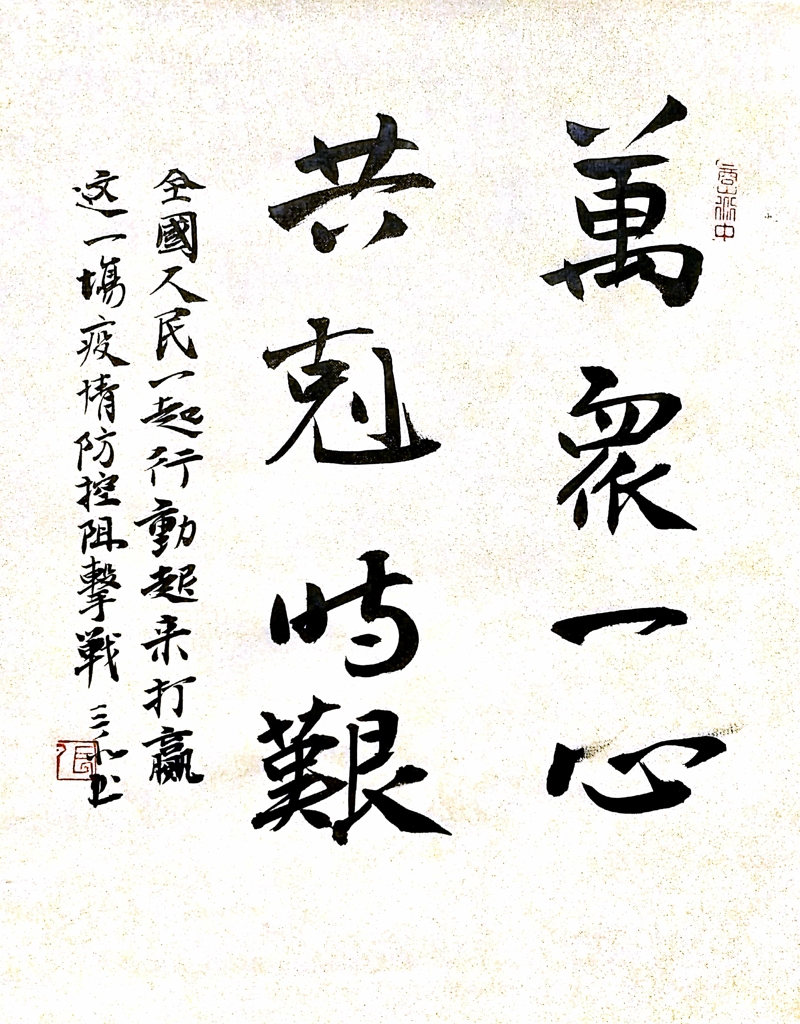 萬眾一心
共剋時艱
全國人民一起行動起来打赢
这一場疫情防控阻擊戰 三水书